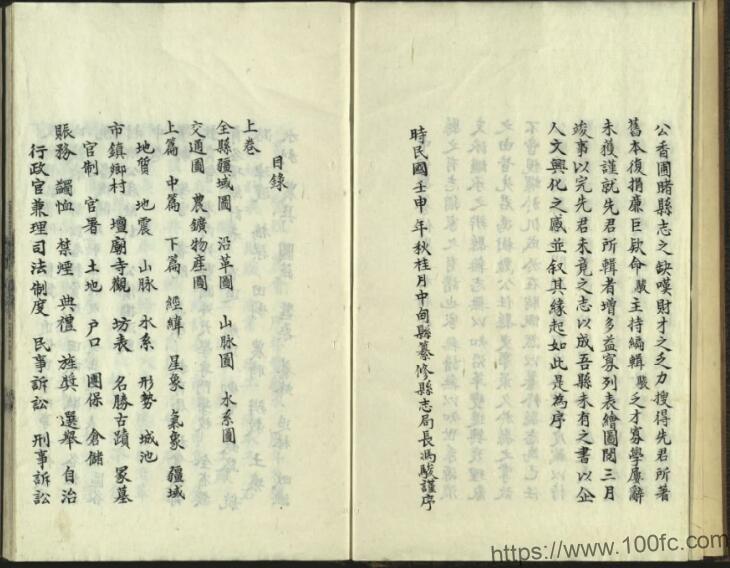 公香圃睹縣志之缺嘆財才之乏力搜得先君所著
舊本復捐廉巨欵命駿主持編輯駿乏才寡學屢辭
未獲謹就先君所輯者增多益寡列表繪圖閱三月
竣事以完先君未竟之志以成吾縣未有之書以企
人文興化之感並叙其緣起如此是為序
時民國壬申年秋桂月中甸縣纂修縣志局長馮駿謹序
目録
上卷
全縣疆域圖 沿革圖 山脉圖 水系圖
交通圖 農鑛物産圖
上篇 中篇 下篇 經緯 星象 氣象 疆域
地質 地震 山脉 水系 形勢 城池
市鎮鄉村 壇廟寺觀 坊表 名勝古蹟 冢墓
官制 官署 土地 户口 團保 倉儲
賬務 蠲恤 禁煙 典禮 旌奬 選舉 自治
行政官兼理司法制度 民事訴訟 刑事訴訟
https://www.100fc.com